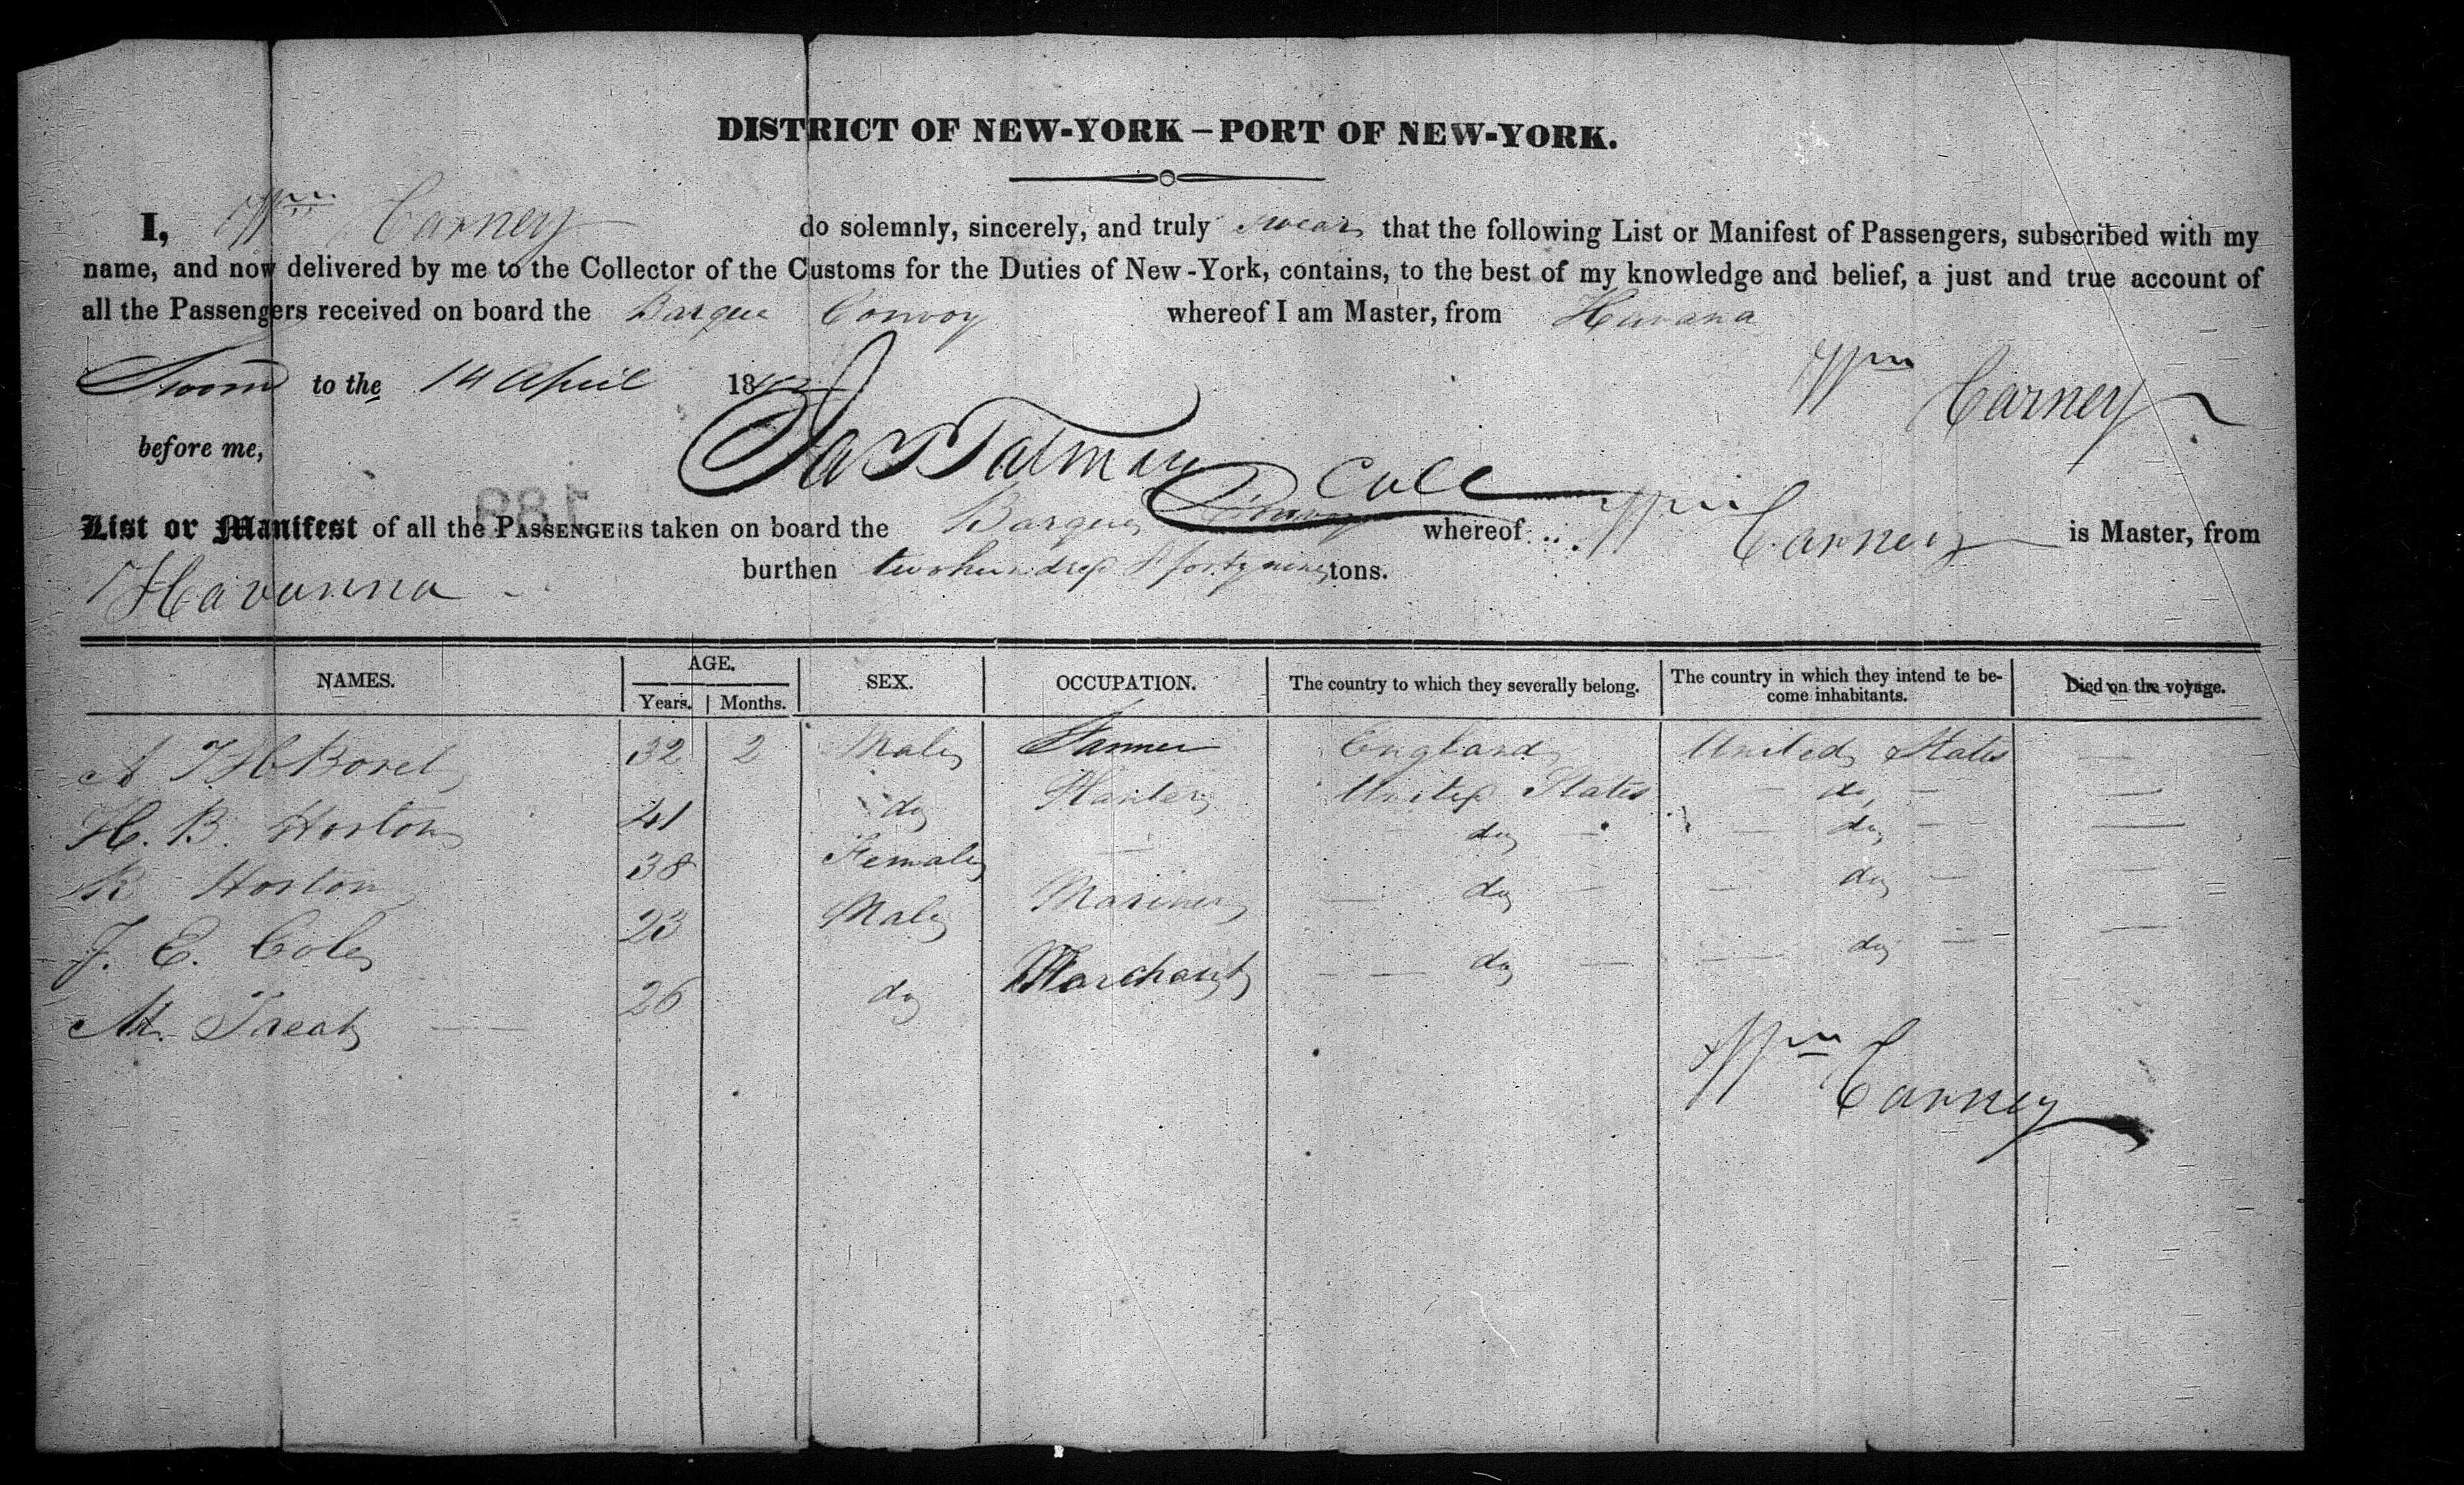 DISTRICT OF NEW-YORK – PORT OF NEW-YORK.
I, Wm Carney do solemnly, sincerely, and truly swear that the following List or Manifest of Passengers, subscribed with my
name, and now delivered by me to the Collector of the Customs for the Duties of New-York, contains, to the best of my knowledge and belief, a just and true account of
all the Passengers received on board the Barque Convoy whereof I am Master, from Havana
Sworn to the 14 April 184 Wm Carney
before me, Jas Talman Coll
List or Manifest of all the PASSENGERS taken on board the Barque Convoy whereof Wm Carney is Master, from
Havanna burthen two hundred & forty nine tons.
NAMES. AGE. SEX. OCCUPATION. The country to which they severally belong. The country in which they intend te be-
come inhabitants. Died on the voyage.
Years. Months.
A 32 2 Male England United States
H. B. Horton 41 do Planter United States do
R Horton 38 Female do do
J. E. Cole 23 Male Mariner do do
M. Treat 26 do Marchant do do
Wm Carney